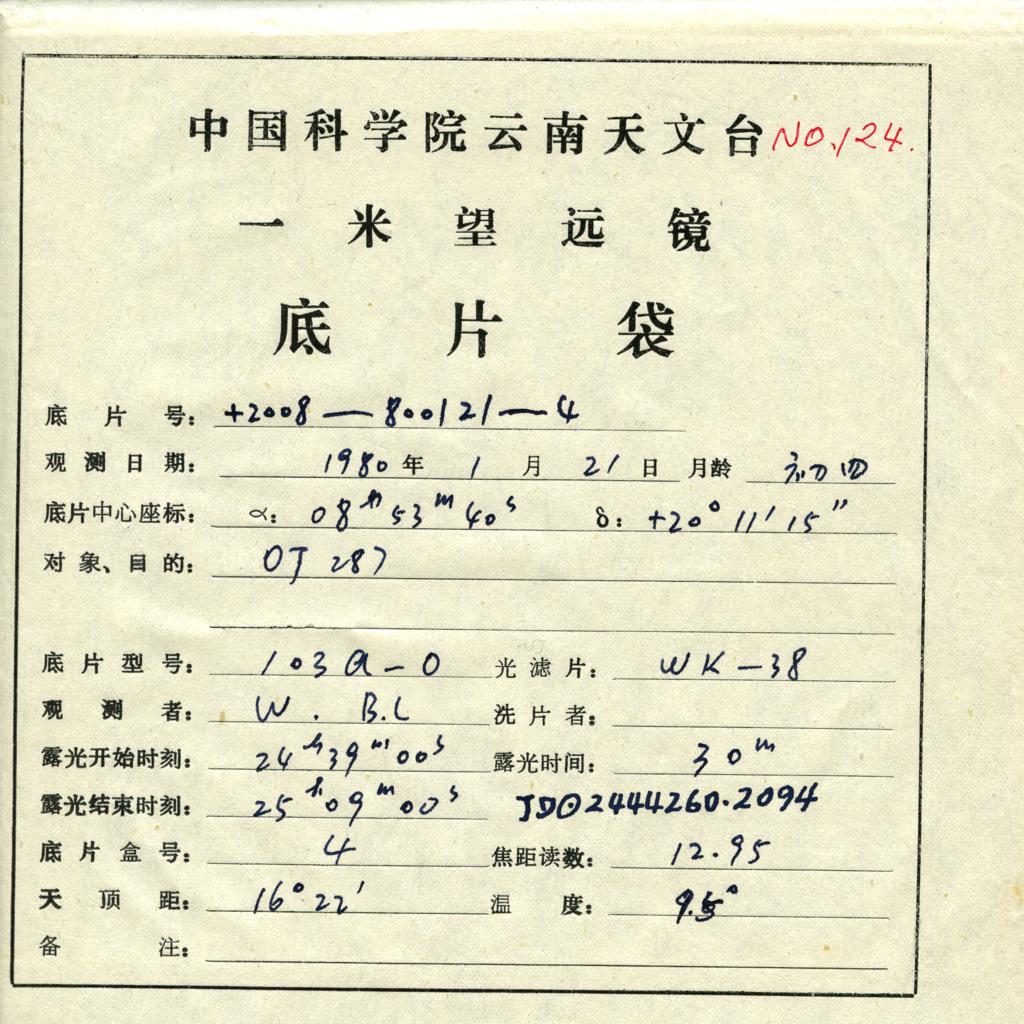 中国科学院云南天文台 NO.124.
一米望远镜
底片袋
底片号: +2008—800121—4
观测日期: 1980年1月21日 月龄 初四
底片中心座标: α: 08ʰ53ᵐ40ˢ δ: +20°11′15″
对象、目的: OJ 287
底片型号: 103a-O 光滤片: WK-38
观测者: W. B.L 洗片者:
露光开始时刻: 24ʰ39ᵐ00ˢ 露光时间: 30ᵐ
露光结束时刻: 25ʰ09ᵐ00ˢ JD⊙2444260.2094
底片盒号: 4 焦距读数: 12.95
天顶距: 16°22′ 温度: 9.5°
备注: